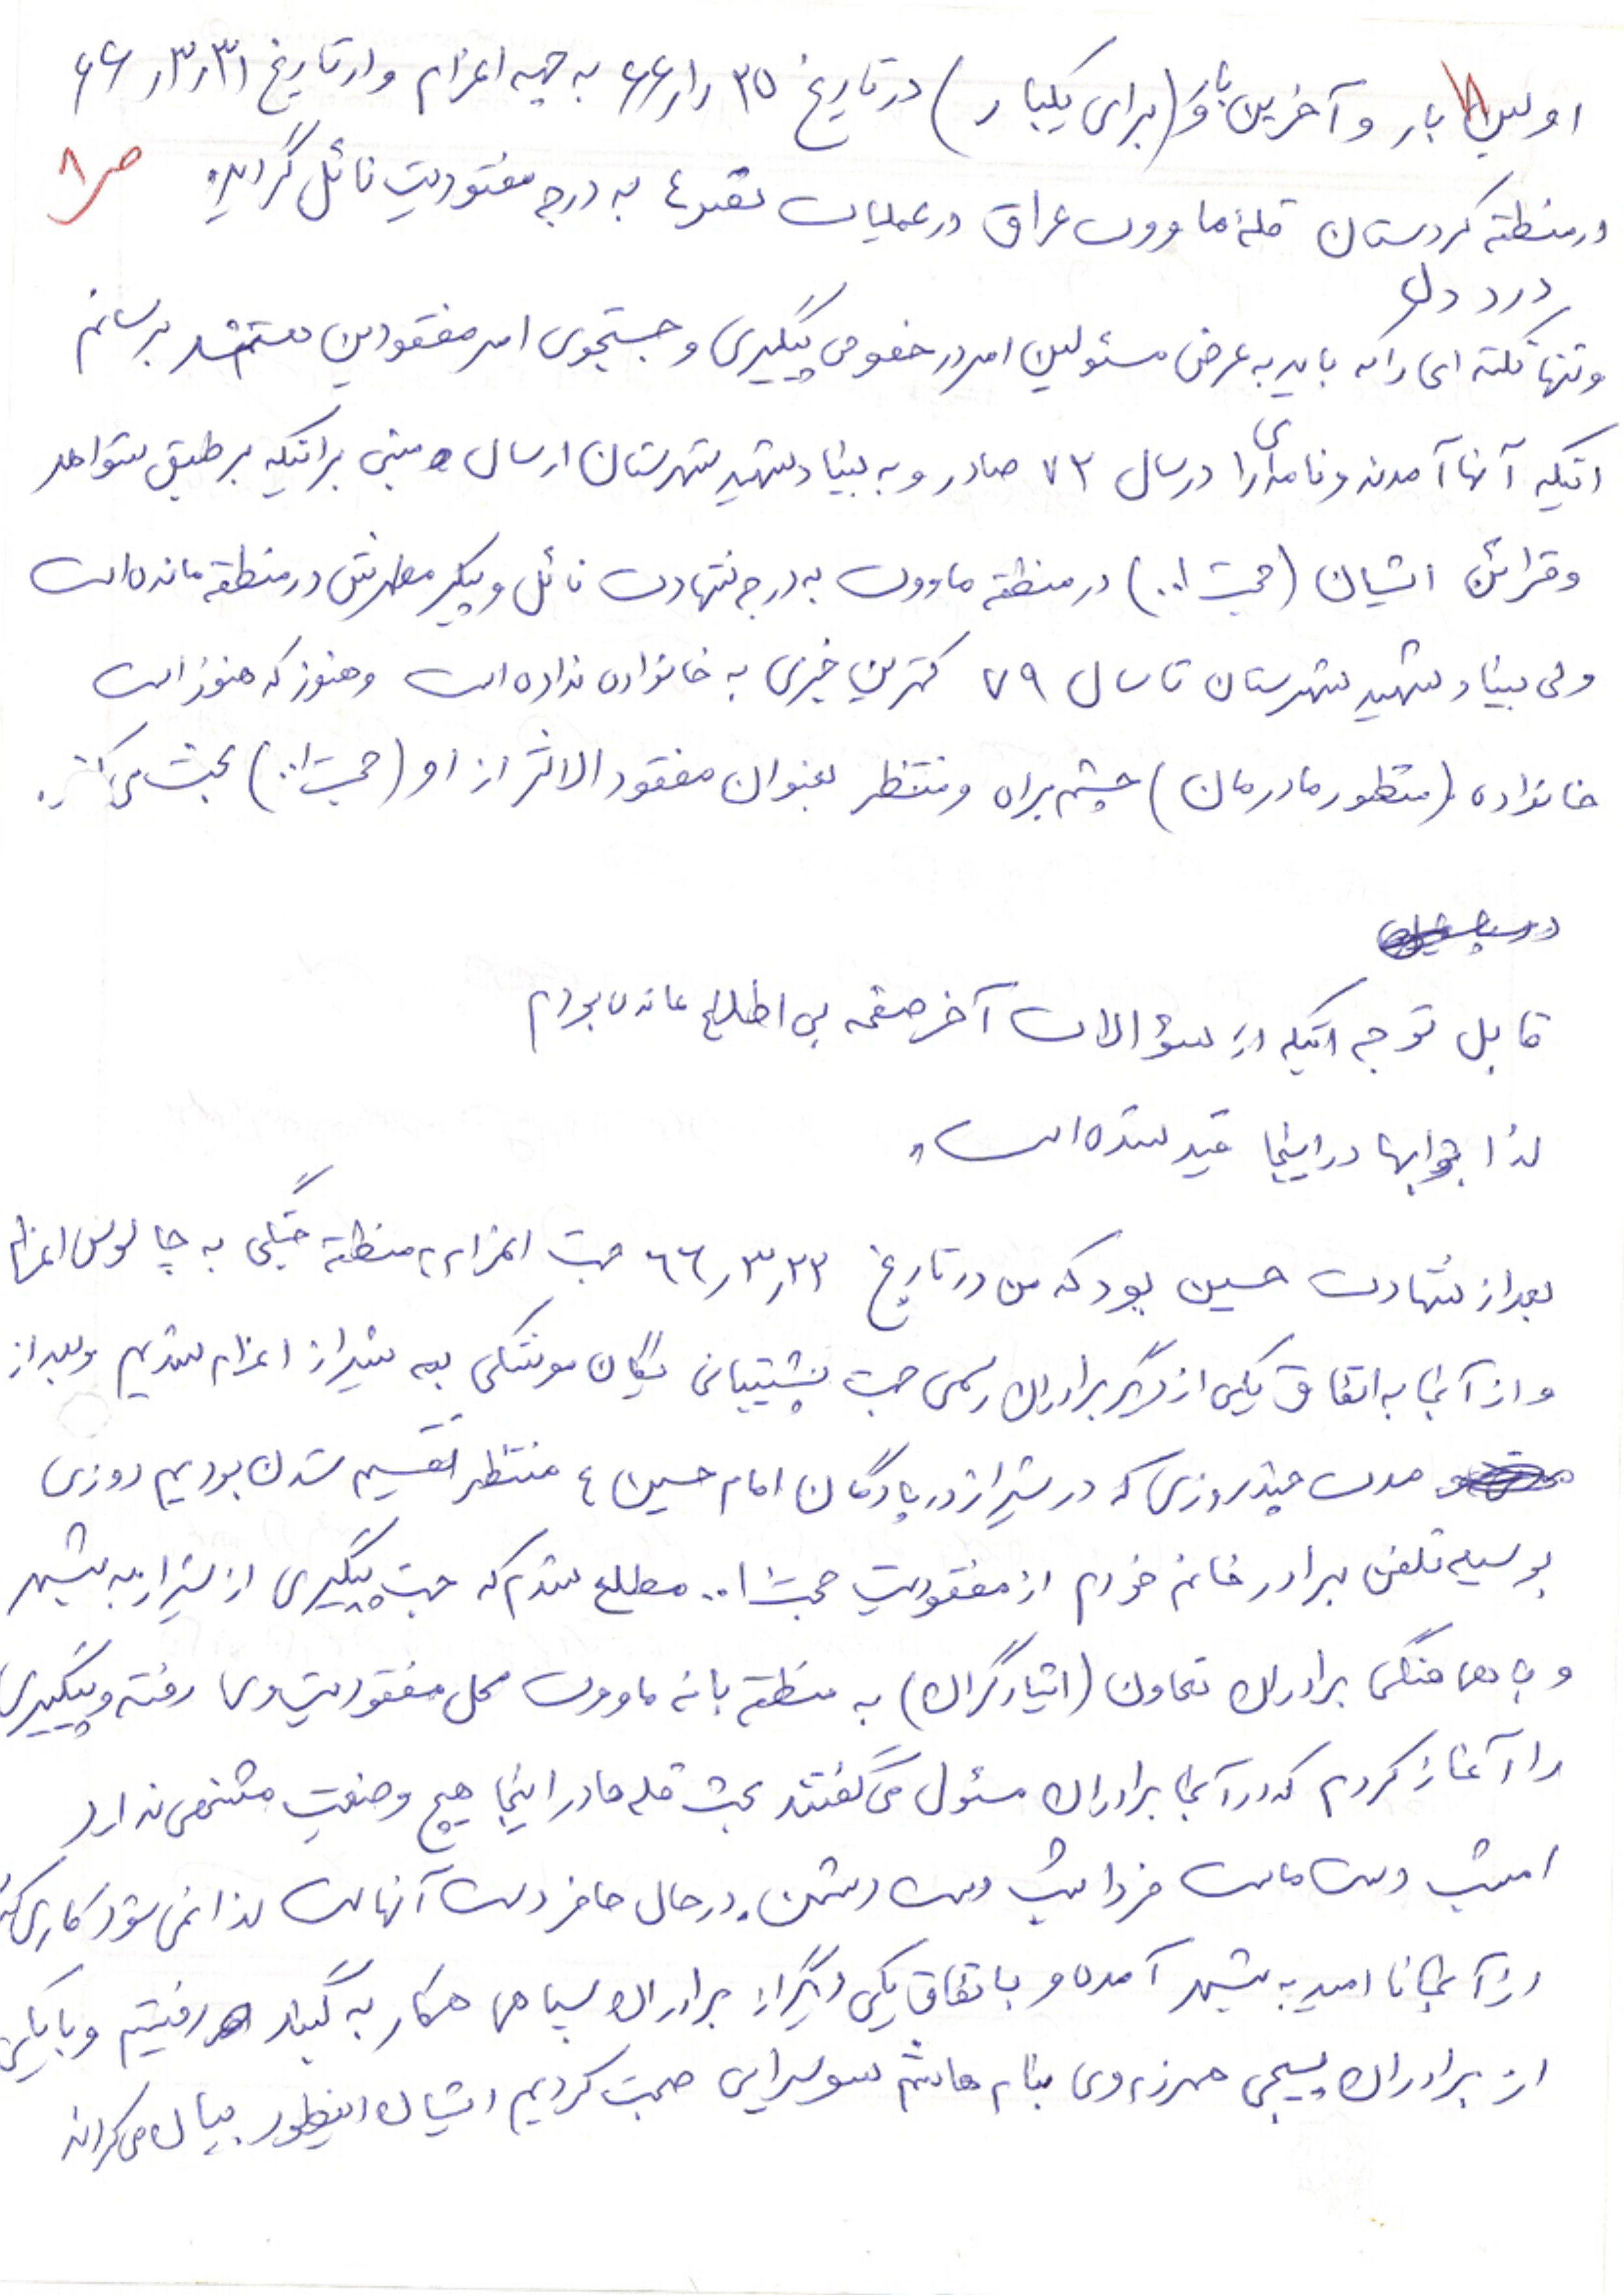 اولین بار و آخرین بار (برای یکبار) در تاریخ ۲۵ ر۱ر۶۶ به جبهه اعزام و در تاریخ ۳۱ر۳ر۶۶
در منطقه کردستان قله ماووت عراق در عملیات به درجه مفقودیت نائل گردید.
ص ۸
درد دل
و تنها نکته ای را که باید به عرض مسئولین امر در خصوص پیگیری و جستجوی امر مفقودین برسانم
اینکه آنها آمدند و نامه ای را در سال ۷۳ صادر و به بنیاد شهید شهرستان ارسال مبنی براینکه بر طبق شواهد
و قرائن ایشان (حجت ا..) در منطقه ماووت به درجه شهادت نائل و پیکر مطهرش در منطقه مانده است
ولی بنیاد شهید شهرستان تا سال ۷۹ کمترین خبری به خانواده نداده است و هنوز که هنوز است
خانواده (منظور مادرمان) چشم براه و منتظر بعنوان مفقود الاثر از او (حجت ا..) بحث می کند.
قابل توجه اینکه از سؤالات آخر صفحه بی اطلاع مانده بودم
لذا جوابها در اینجا قید شده است.
بعد از شهادت حسین بود که من در تاریخ ۲۳ر۳ر۶۶ جهت اعزام به منطقه جنگی به چالوس اعزام
و از آنجا به اتفاق یکی از دیگر برادران رسمی جهت پشتیبانی یگان موشکی به شیراز اعزام شدیم و بعد از
مدت چند روزی که در شیراز در پادگان امام حسین ع منتظر تقسیم شدن بودیم روزی
بوسیله تلفن برادر خانم خودم از مفقودیت حجت ا.. مطلع شدم که جهت پیگیری از شیراز به بهشهر
و با هماهنگی برادران تعاون (ایثارگران) به منطقه بانه ماووت محل مفقودیت وی رفته و پیگیری
را آغاز کردم که در آنجا برادران مسئول می گفتند بحث قله ها در اینجا هیچ وضعیت مشخصی ندارد
امشب دست ماست فردا شب دست دشمن. در حال حاضر دست آنهاست لذا نمی شود کاری کرد
از آنجا نا امید به بهشهر آمده و باتفاق یکی دیگر از برادران سپاهی همکار به گلباد رفتیم و با یکی
از برادران بسیجی همرزم وی بنام هاشم صحبت کردیم ایشان اینطور بیان می کردند